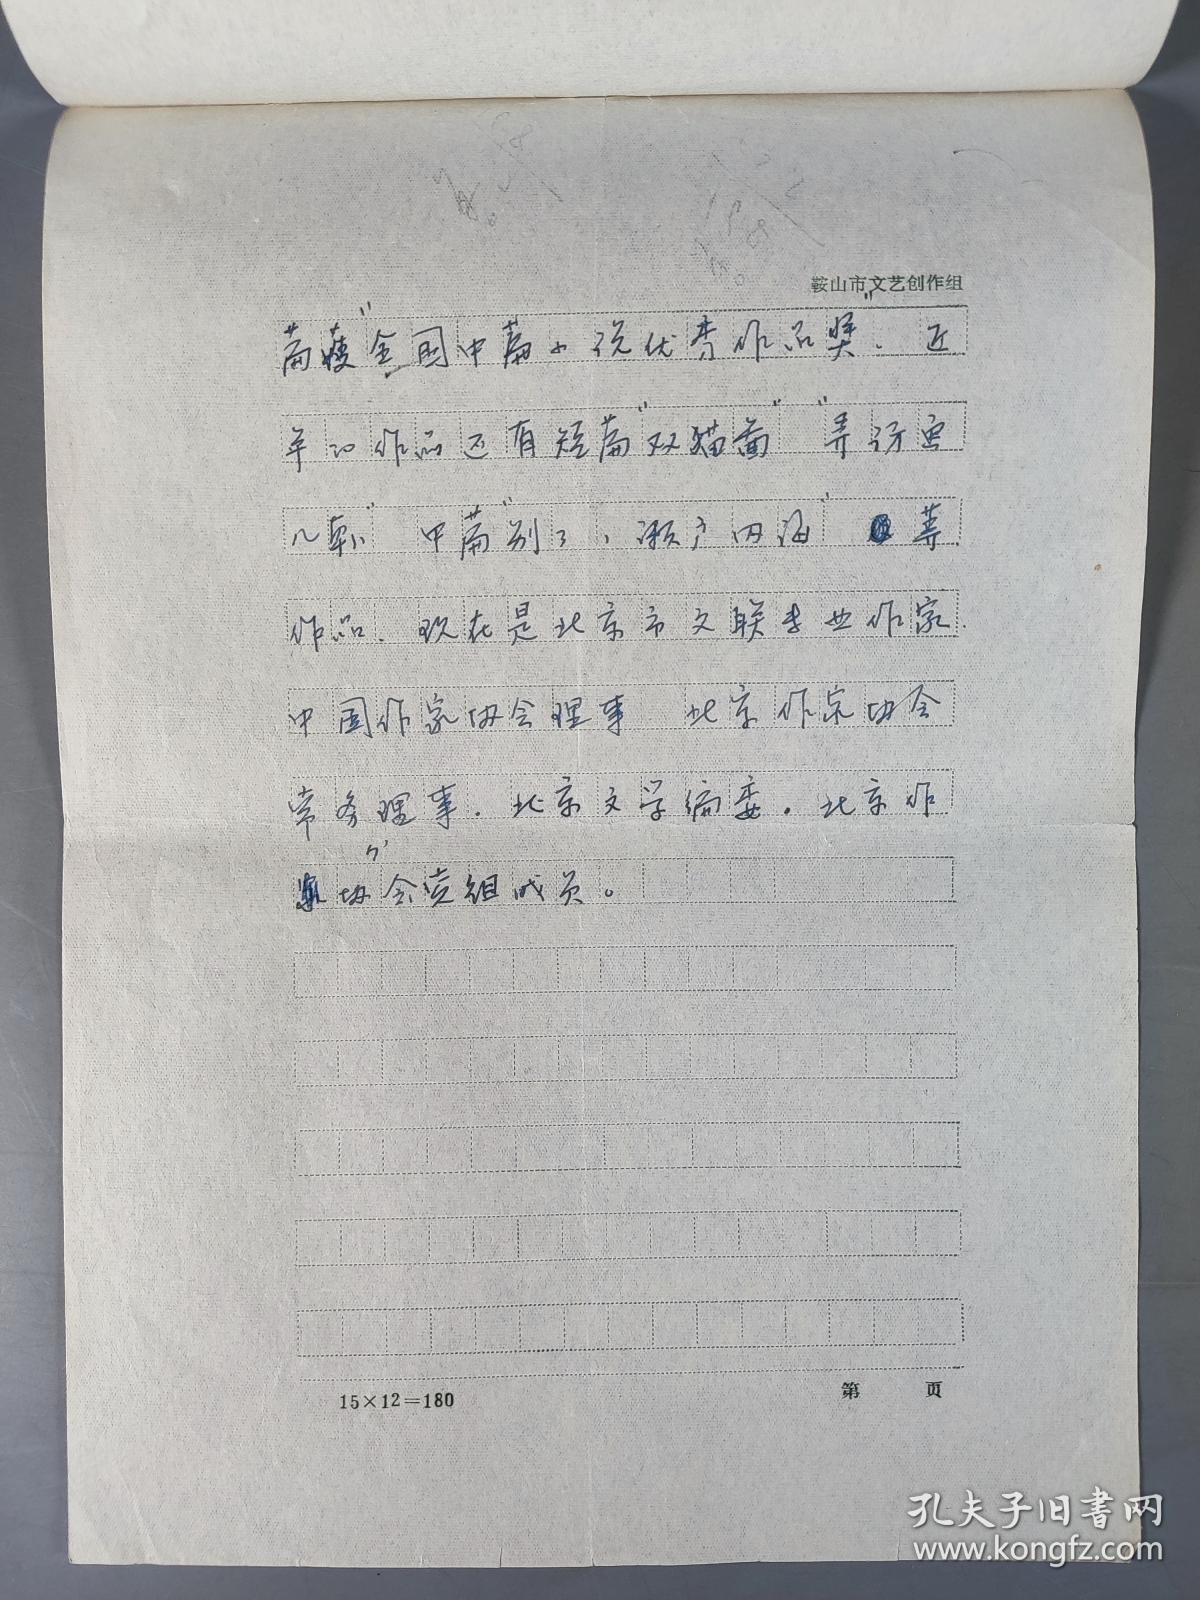 鞍山市文艺创作组
篇获"全国中篇小说优秀作品奖"．近
年的作品还有短篇"双猫图""寻访画
儿韩"中篇"别了，濑户内海"等
作品．现在是北京市文联专业作家．
中国作家协会理事 北京作家协会
常务理事．北京文学编委．北京作
协会党组成员。
15×12=180
第 页
孔夫子旧书网
www.kongfz.com